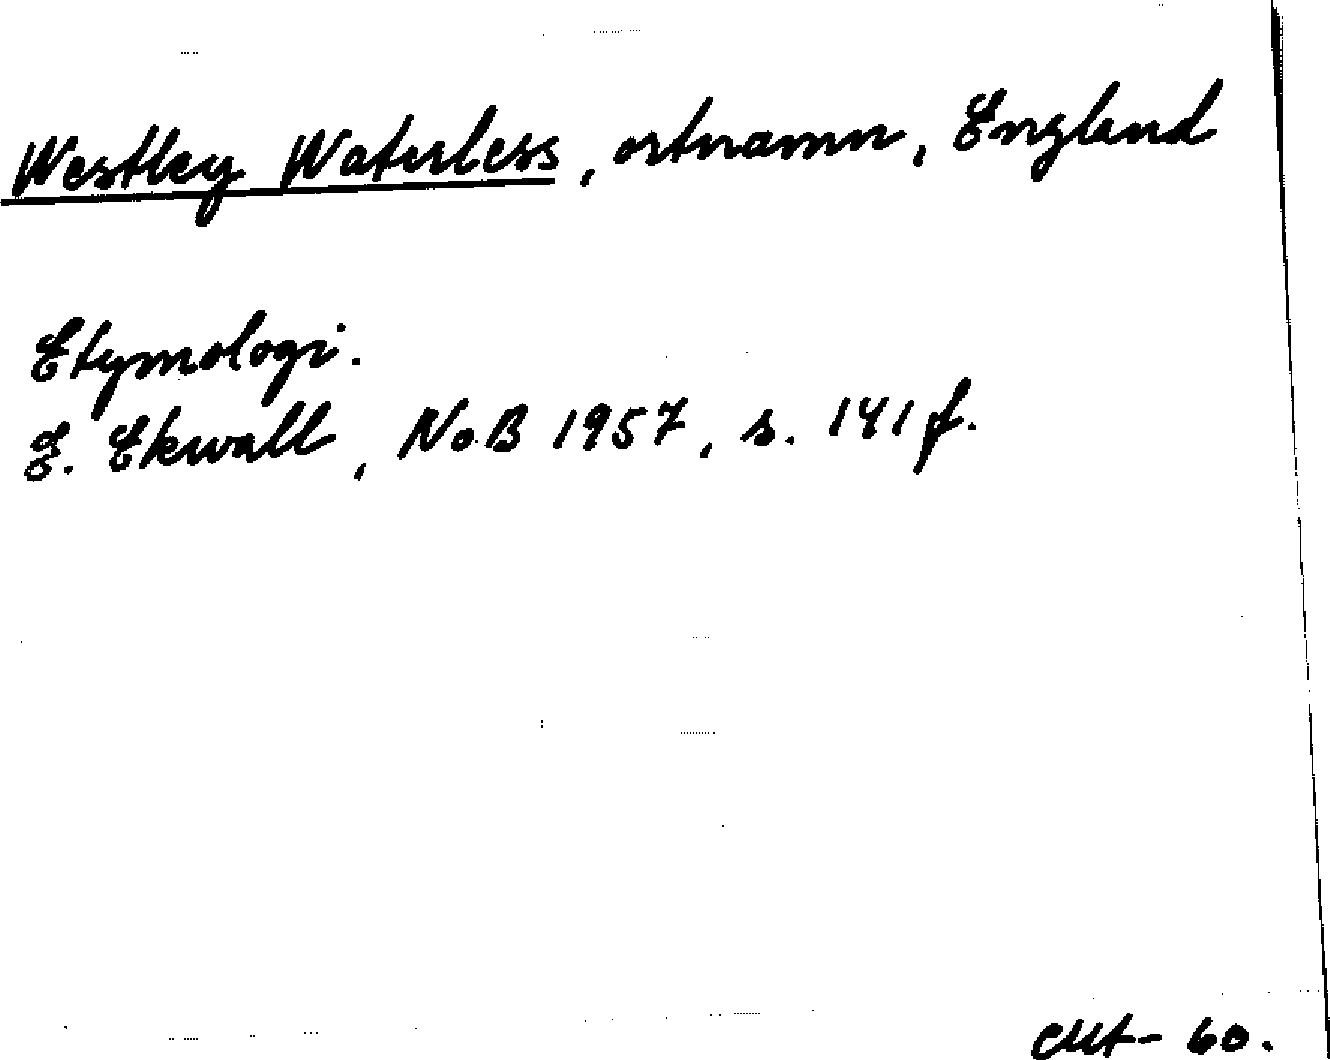 Westley Waterless, ortnamn, England
Etymologi.
E. Ekwall, NoB 1957, s. 141 f.
60.